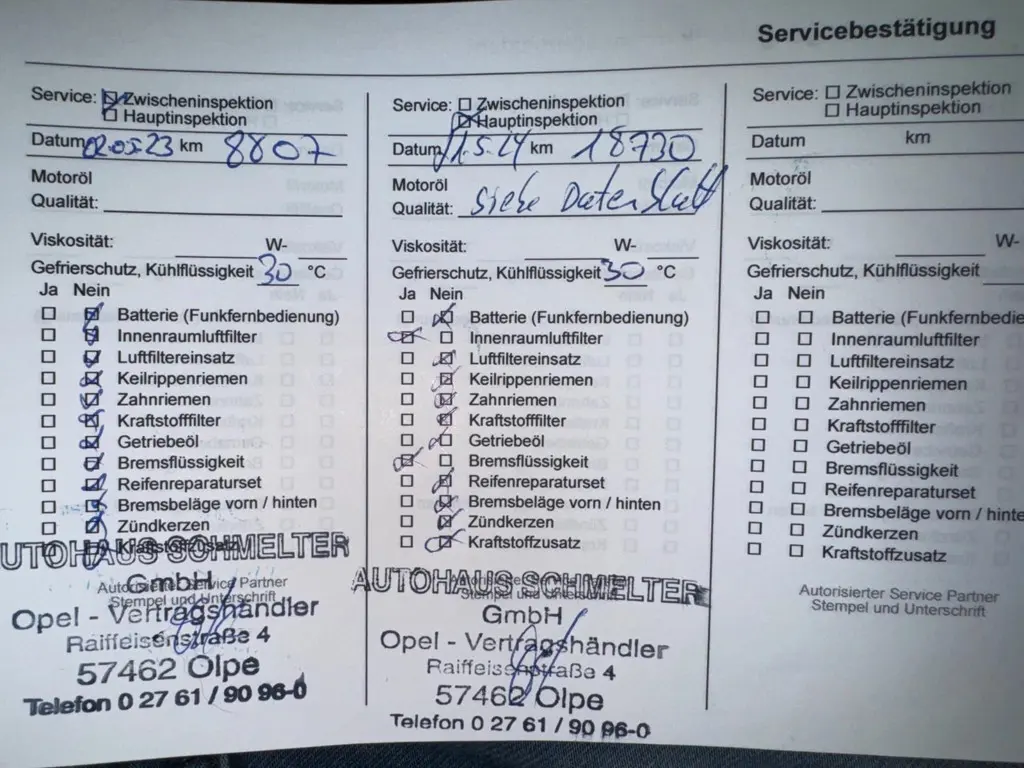 Servicebestätigung
Service: Zwischeninspektion
Hauptinspektion
Datum 02.05.23 km 8807
Motoröl
Qualität:
Viskosität: W-
Gefrierschutz, Kühlflüssigkeit 30 °C
Ja Nein
Batterie (Funkfernbedienung)
Innenraumluftfilter
Luftfiltereinsatz
Keilrippenriemen
Zahnriemen
Kraftstofffilter
Getriebeöl
Bremsflüssigkeit
Reifenreparaturset
Bremsbeläge vorn / hinten
Zündkerzen
Kraftstoffzusatz
UTOHAUS SCHMELTER
GmbH
Autorisierter Service Partner
Stempel und Unterschrift
Opel - Vertragshändler
Raiffeisenstraße 4
57462 Olpe
Telefon 0 27 61 / 90 96-0
Service: Zwischeninspektion
Hauptinspektion
Datum km 18730
Motoröl
Qualität: siehe Datenblatt
Viskosität: W-
Gefrierschutz, Kühlflüssigkeit 30 °C
Ja Nein
Batterie (Funkfernbedienung)
Innenraumluftfilter
Luftfiltereinsatz
Keilrippenriemen
Zahnriemen
Kraftstofffilter
Getriebeöl
Bremsflüssigkeit
Reifenreparaturset
Bremsbeläge vorn / hinten
Zündkerzen
Kraftstoffzusatz
AUTOHAUS SCHMELTER
GmbH
Opel - Vertragshändler
Raiffeisenstraße 4
57462 Olpe
Telefon 0 27 61 / 90 96-0
Service: Zwischeninspektion
Hauptinspektion
Datum km
Motoröl
Qualität:
Viskosität: W-
Gefrierschutz, Kühlflüssigkeit
Ja Nein
Batterie (Funkfernbedie
Innenraumluftfilter
Luftfiltereinsatz
Keilrippenriemen
Zahnriemen
Kraftstofffilter
Getriebeöl
Bremsflüssigkeit
Reifenreparaturset
Bremsbeläge vorn / hinte
Zündkerzen
Kraftstoffzusatz
Autorisierter Service Partner
Stempel und Unterschrift